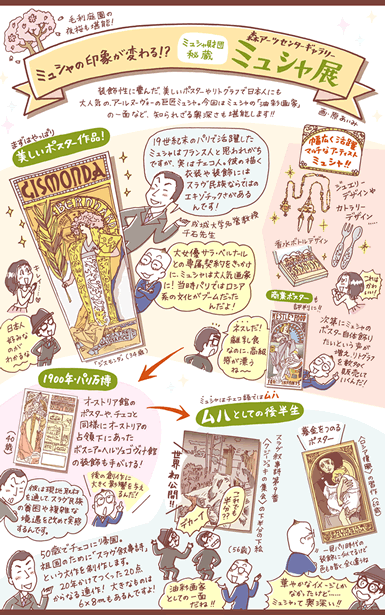 毛利庭園の
夜桜も堪能!
ミュシャの印象が変わる!?
ミュシャ財団
秘蔵
森アーツセンターギャラリー
ミュシャ展
装飾性に富んだ、美しいポスターやリトグラフで日本人にも
大人気のアール・ヌーヴォーの巨匠ミュシャ。今回はミュシャの「油彩画家」
の一面など、知られざる奥深さも堪能します!!
画・原あいみ
まずはやっぱり
美しいポスター作品!
GISMONDA
BERNHARDT
「ジスモンダ」(34歳)
日本人
好みなの
がわかるな
19世紀末のパリで活躍した
ミュシャはフランス人と思われがち
ですが、実はチェコ人。彼の描く
衣装や装飾には
スラヴ民族ならではの
エキゾチックさがある
んです!
成城大学名誉教授
千足先生
大女優サラ・ベルナール
との専属契約をきっかけ
に、ミュシャは大人気画家
に!当時パリではロシア
系の文化がブームだった
んだよ!
幅広く活躍
マルチなアーティスト
ミュシャ!!
ジュエリー
デザインや
カトラリー
デザイン
香水ボトルデザイン
これは
かわいい!
商業ポスター
も評判に!!
ネスレだ!
離乳食
なのに、高級
感が漂う
ね〜
次第にミュシャの
ポスター自体飾り
たいという声が
増え、リトグラフ
を軟らかく
見せて
いくんだ!
1900年・パリ万博
オーストリア館の
ポスターや、チェコと
同様にオーストリアの
占領下にあった
ボスニア・ヘルツェゴヴィナ館
の装飾も手がける!
40歳
彼は現地取材
を通して、スラヴ民族
の苦困や複雑な
境遇を改めて実感
するんです。
後の創作に
大きく影響を与え
るんだ!
50歳でチェコに帰国。
祖国のために「スラヴ叙事詩」
という大作を創作します。
20年かけてつくった20点
からなる連作!大きなものは
6×8mもあるんですよ。
ミュシャはチェコ語ではムハ
ムハとしての後半生
世界初公開!!
(56歳)
油彩画家
としての一面
だね!!
募金をつのる
ポスター
華やかなイメージしか
なかったけど……
ミュシャって奥深い!